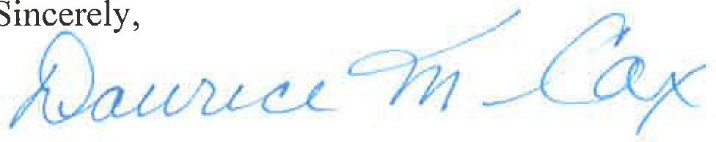 Sincerely,
Daurice M Cox